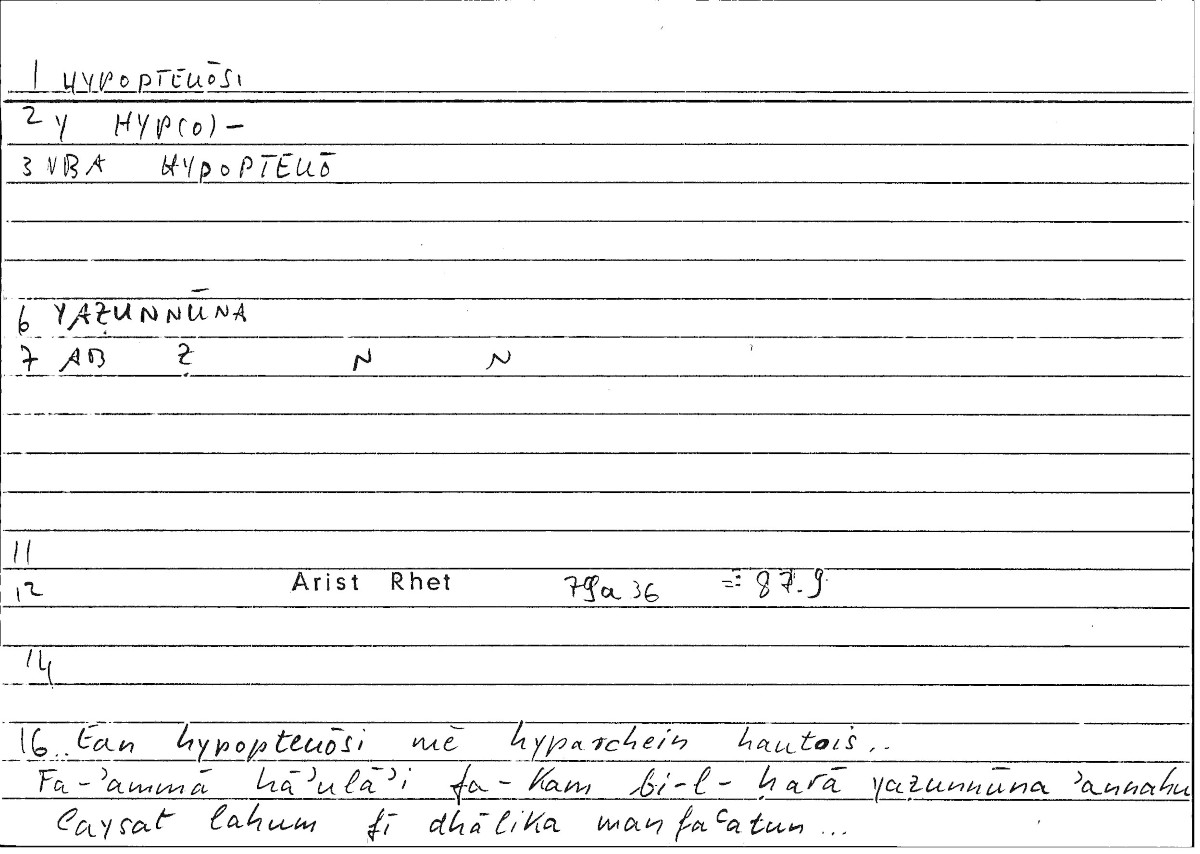 1 HYPOPTEUŌSI
2 Y HYP(O)-
3 VBA HYPOPTEUŌ
6 YAẒUNNŪNA
7 AB Ẓ N N
11
12 Arist Rhet 79a 36 =: 87.9
14
16.. Ean hypopteuōsi mē hyparchein hautois..
Fa-ʾammā hāʾulāʾi fa-Kam bi-l-ḥarā yaẓunnūna ʾannahu
laysat lahum fī dhālika manfaʿatun...